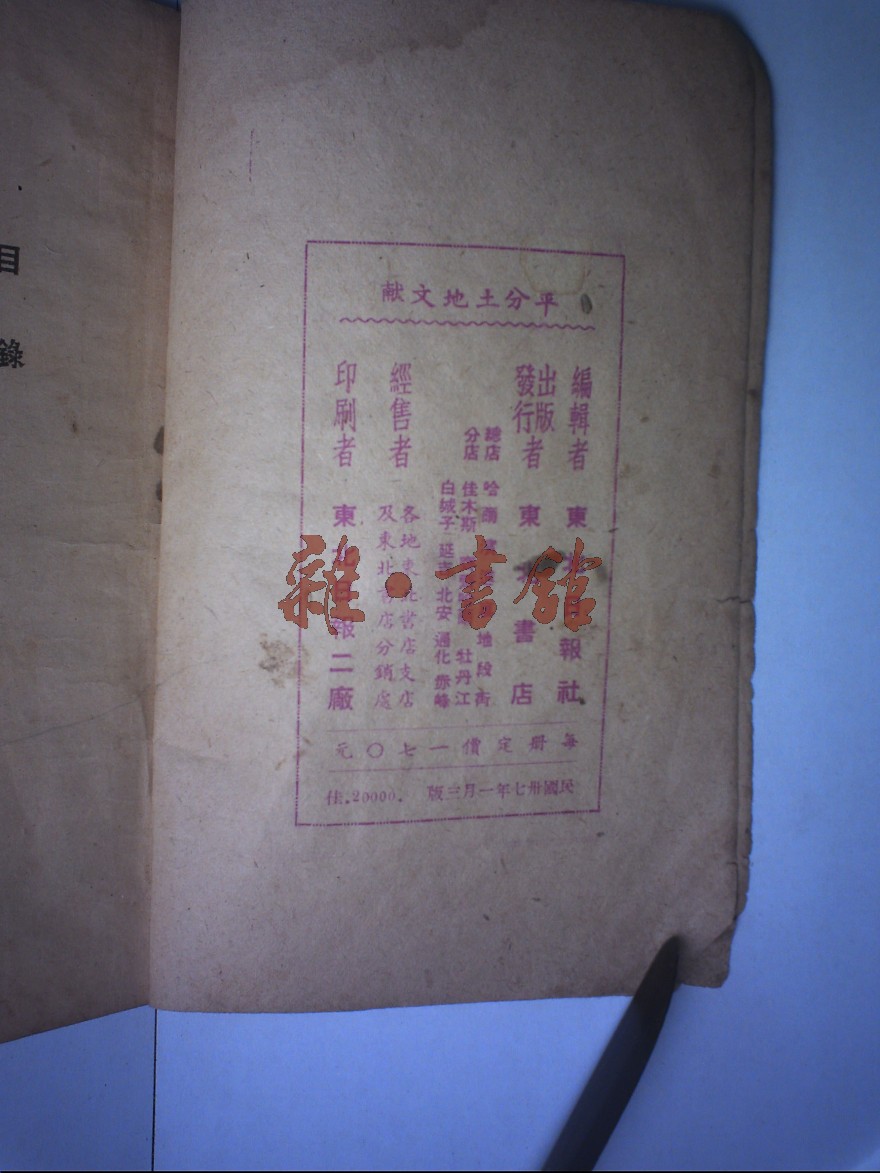 平分土地文献
編輯者 東北日報社
出版
發行者 東北書店
總店 哈爾 地段街
分店 佳木斯 牡丹江
白城子 延吉 北安 通化 赤峰
經售者 各地東北書店支店
及東北書店分銷處
印刷者 東北日報二廠
每冊定價一七〇元
民國卅七年一月三版 .20000.佳
目錄
雜·書館